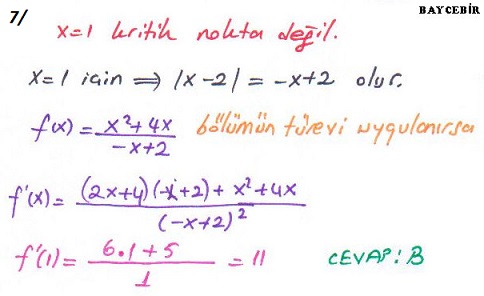 7/ BAYCEBİR
x=1 kritik nokta değil.
x=1 için ⟹ |x-2| = -x+2 olur.
f(x) = (x²+4x)/(-x+2) bölümün türevi uygulanırsa
f'(x) = ((2x+4)(-x+2) + x²+4x)/(-x+2)²
f'(1) = (6.1+5)/1 = 11 CEVAP: B